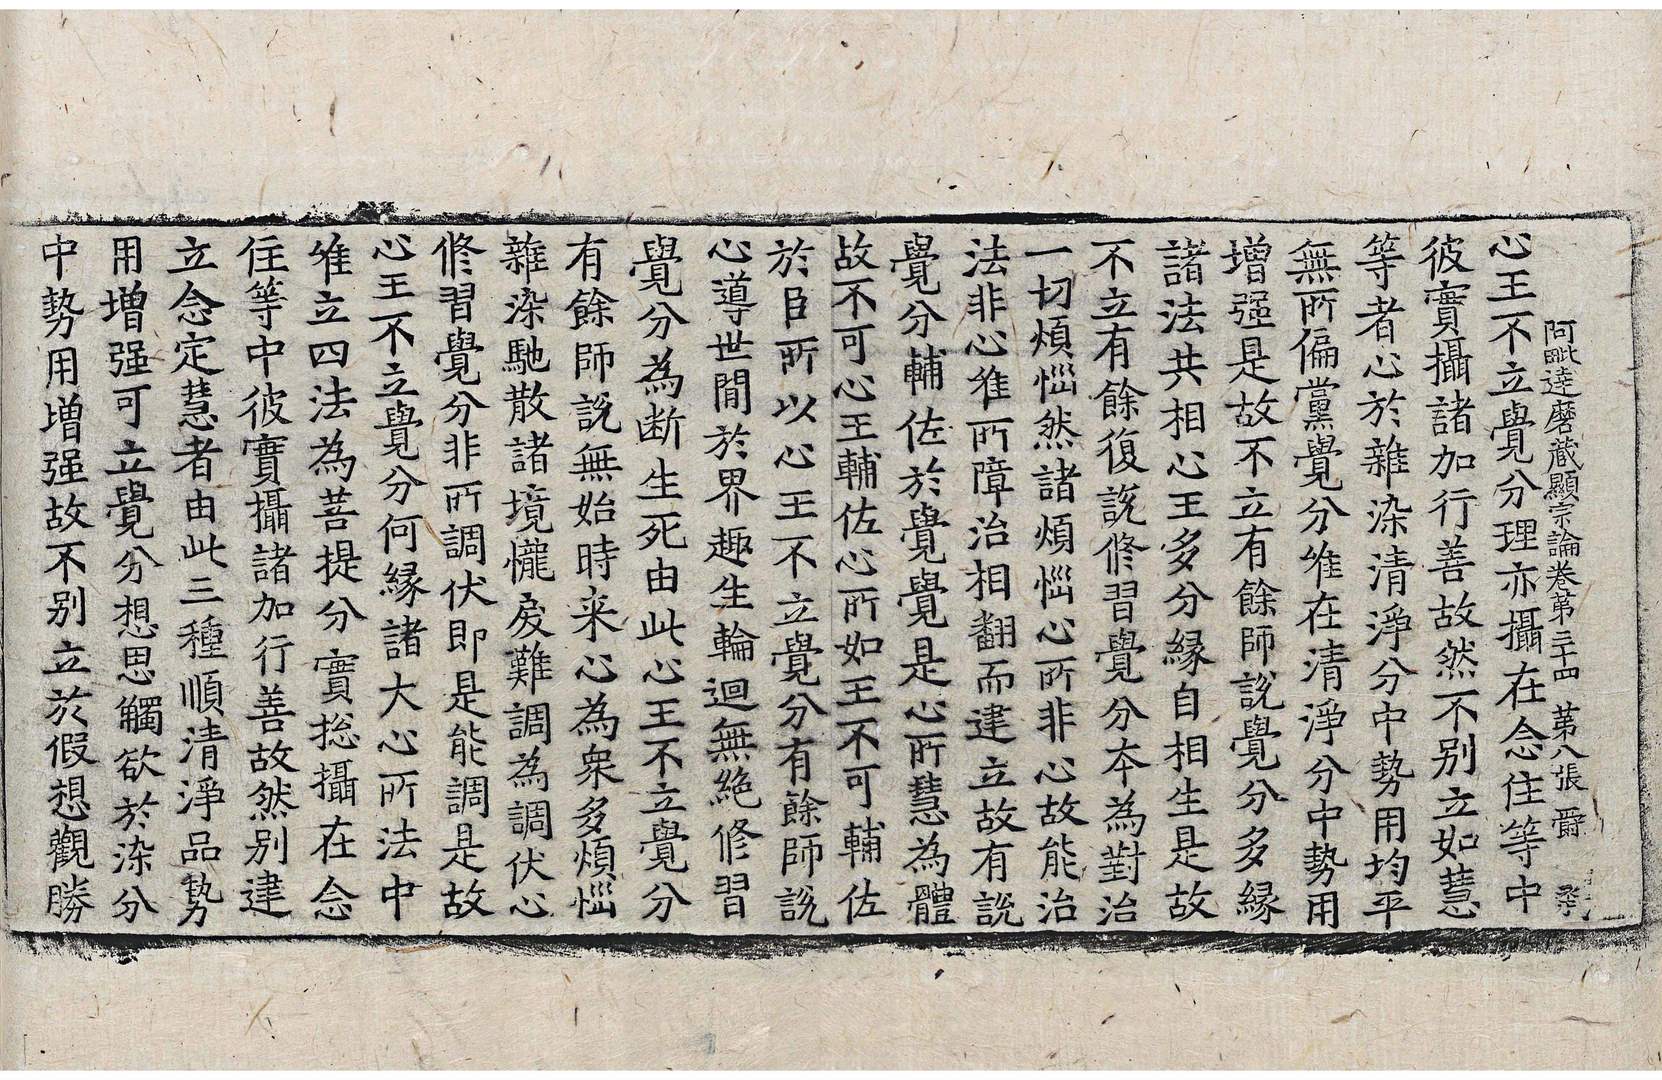 阿毗達磨蔵顯宗論卷第三十四　第八張　爵
心王不立覺分理亦攝在念住等中
彼實攝諸加行善故然不别立如慧
等者心於雜染清淨分中勢用均平
無所偏黨覺分唯在清淨分中勢用
增强是故不立有餘師說覺分多緣
諸法共相心王多分緣自相生是故
不立有餘復說修習覺分本為對治
一切煩惱然諸煩惱心所非心故能治
法非心唯所障治相翻而建立故有說
覺分輔佐於覺覺是心所慧為體
故不可心王輔佐心所如王不可輔佐
於臣所以心王不立覺分有餘師說
心導世間於界趣生輪迴無絕修習
覺分為断生死由此心王不立覺分
有餘師說無始時来心為衆多煩惱
雜染馳散諸境𢤱戾難調為調伏心
修習覺分非所調伏即是能調是故
心王不立覺分何緣諸大心所法中
唯立四法為菩提分實捴攝在念
住等中彼實攝諸加行善故然别建
立念定慧者由此三種順清淨品勢
用增强可立覺分想思觸欲於染分
中勢用增强故不别立於假想觀勝